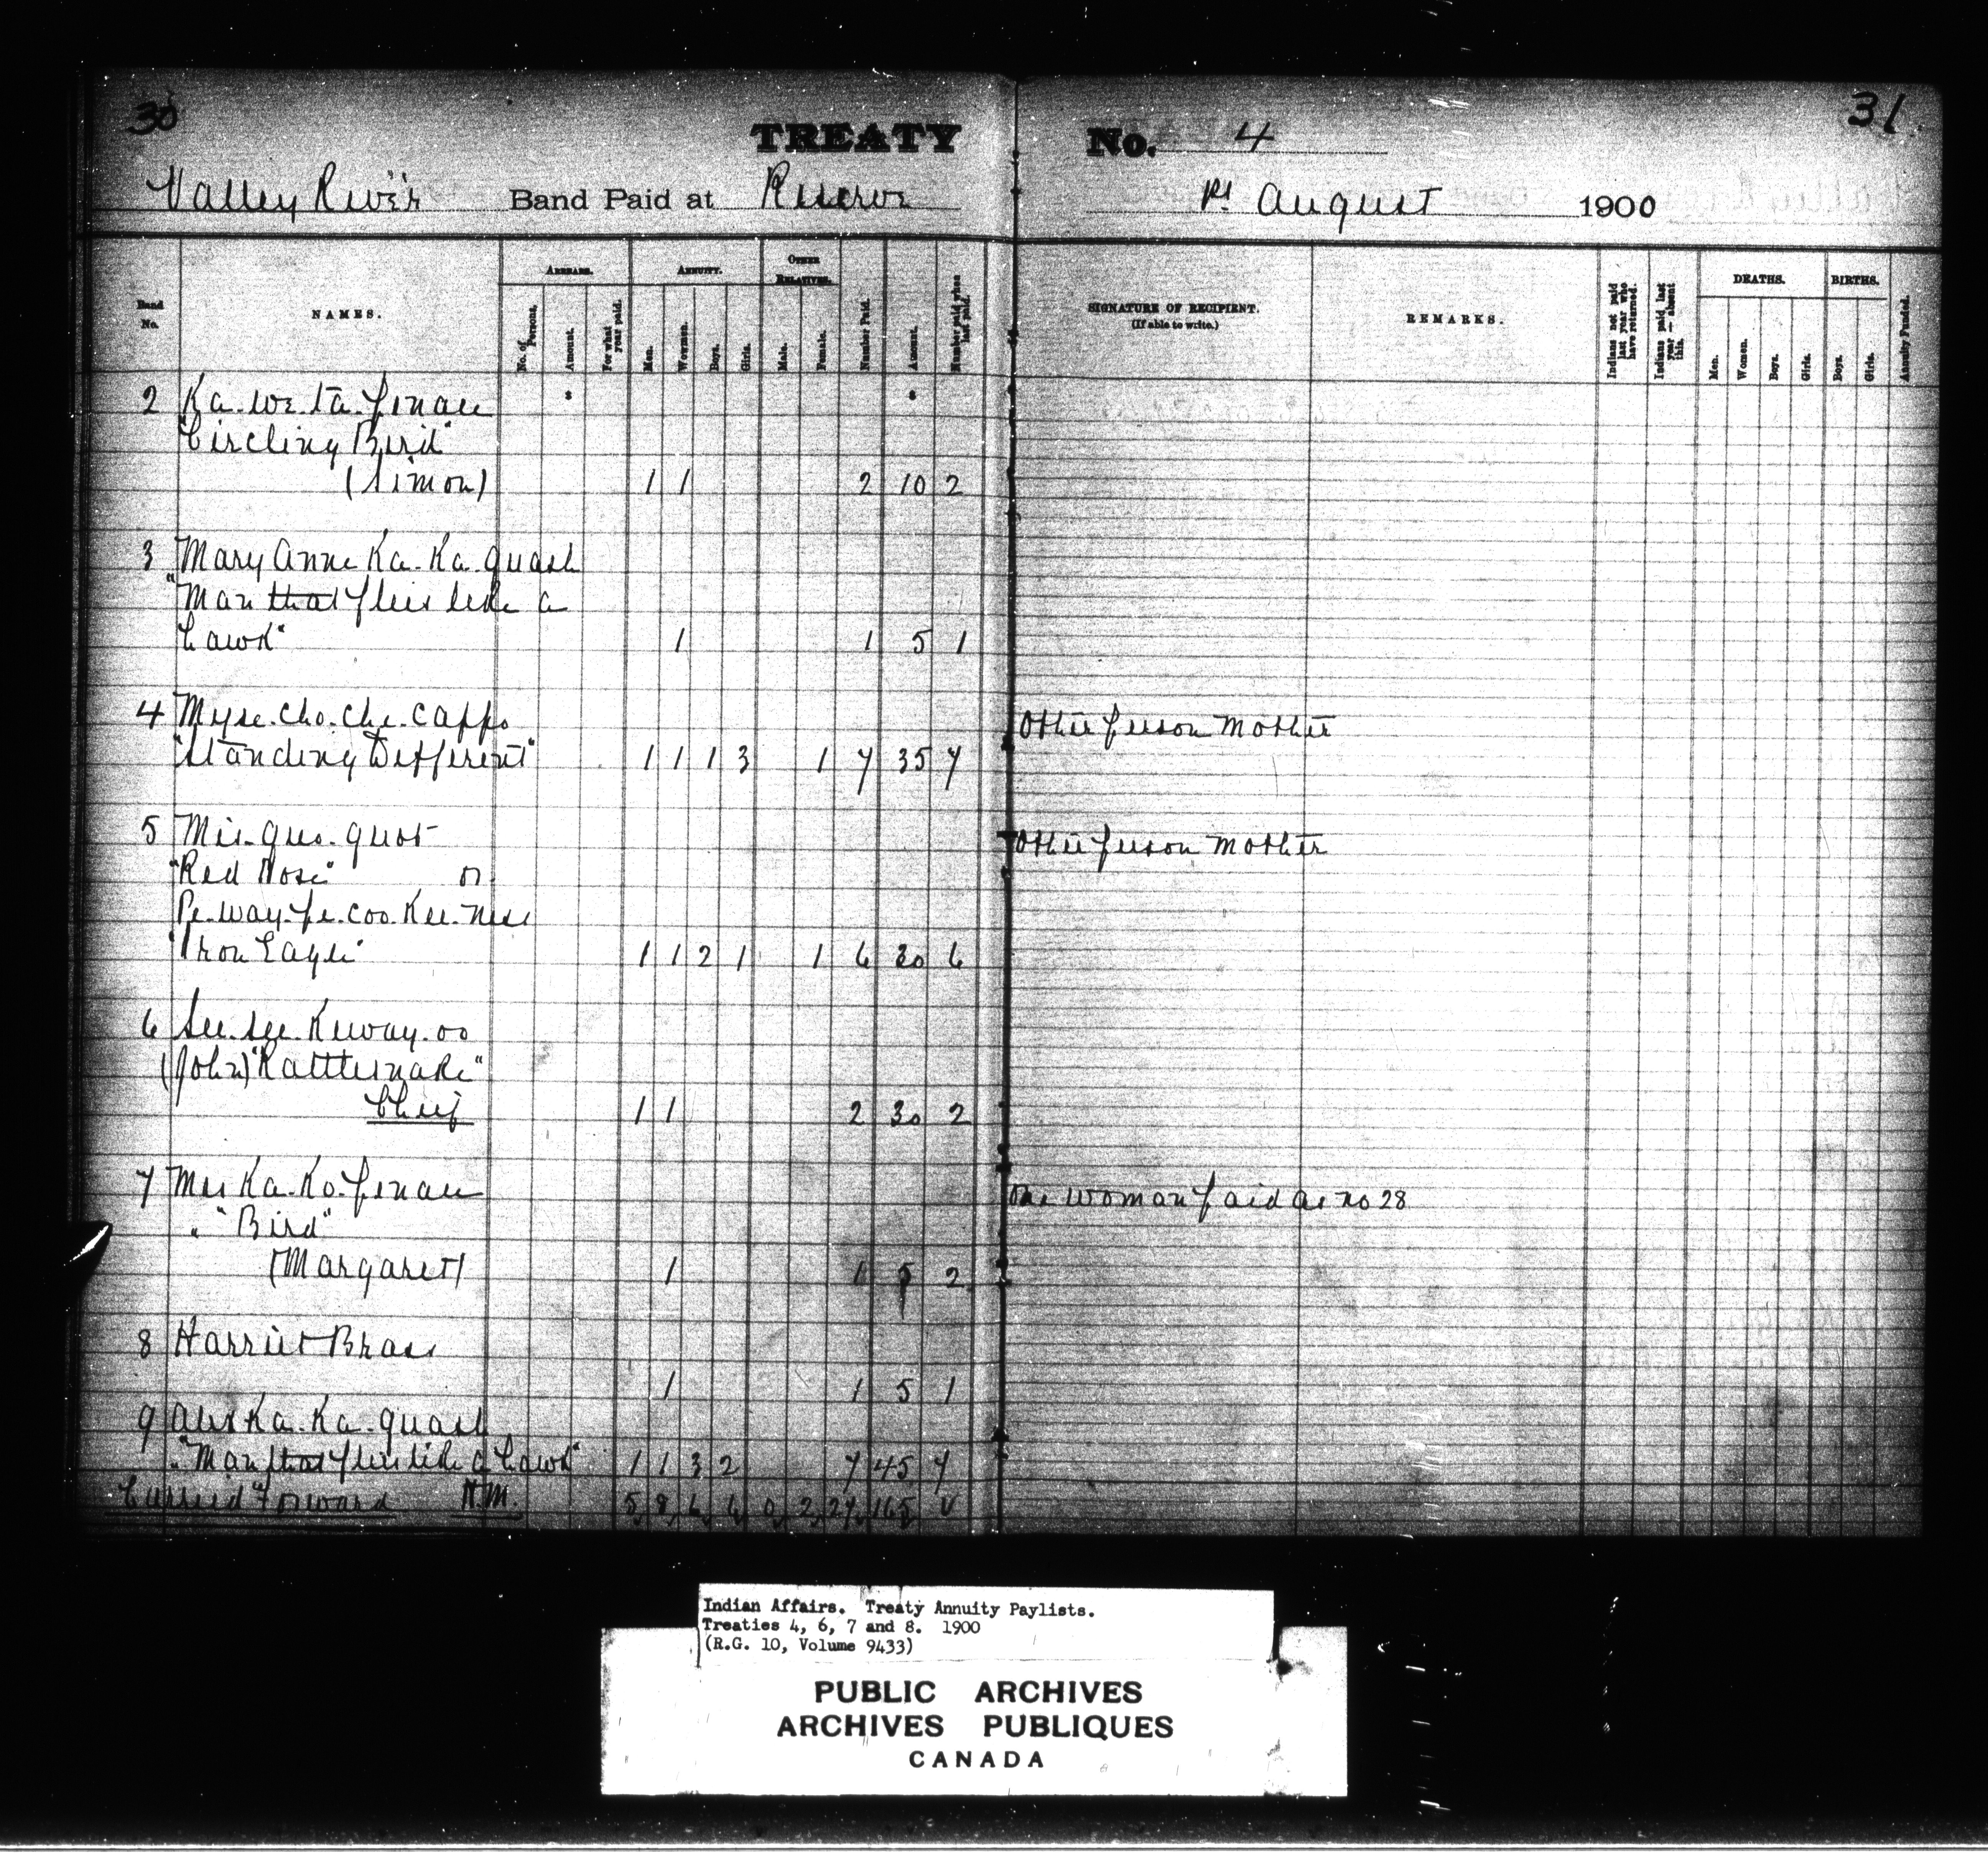 30
31
TREATY No. 4
Valley River Band Paid at Reserve 1st August 1900
Band No.
NAMES.
ARREARS.
No. of Persons.
Amount.
For what year paid.
ANNUITY.
Men.
Women.
Boys.
Girls.
OTHER RELATIVES.
Male.
Female.
Number Paid.
Amount.
Number paid when last paid.
SIGNATURE OF RECIPIENT.
(If able to write.)
REMARKS.
Indians not paid last year who have returned.
Indians paid last year — absent this.
DEATHS.
Men.
Women.
Boys.
Girls.
BIRTHS.
Boys.
Girls.
Annuity Funded.
2 Ka.we.ta.penace
"Circling Bird"
(Simon) 1 1 2 10 2
3 Mary Anne Ka.Ka.quash
"Man that flies like a
hawk" 1 1 5 1
4 Myse.cho.che.cappo Other person Mother
"Standing Different" 1 1 1 3 1 7 35 7
5 Mis.quo.quot Other person Mother
"Red Nose" or
Pe.way.pe.coo.Kee.nese
"Iron Eagle" 1 1 2 1 1 6 30 6
6 See.see.Keway.oo
(John) "Rattlesnake"
Chief 1 1 2 30 2
7 Mis Ka.Ko.penace One woman paid as no 28
" "Bird"
(Margaret) 1 1 5 2
8 Harriet Brass
1 1 5 1
9 Alex Ka.Ka.quash
"Man that flies like a hawk" 1 1 3 2 7 45 7
Carried Forward H.M. 5 8 6 6 0 2 27 165 V
Indian Affairs. Treaty Annuity Paylists.
Treaties 4, 6, 7 and 8. 1900
(R.G. 10, Volume 9433)
PUBLIC ARCHIVES
ARCHIVES PUBLIQUES
CANADA